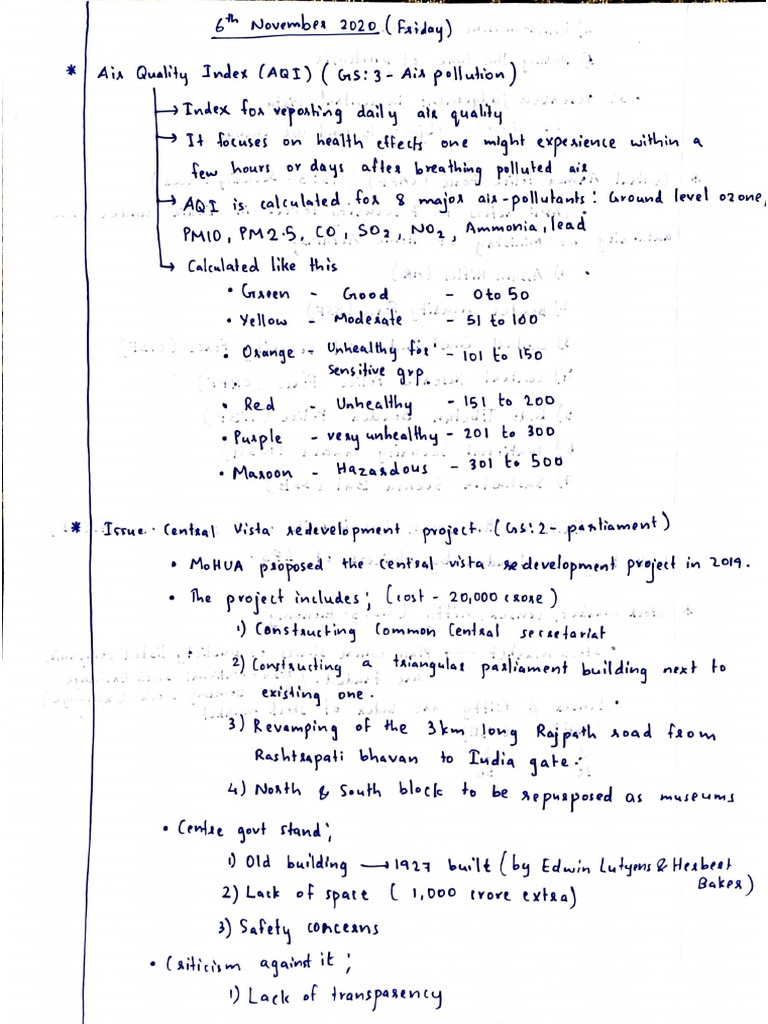 6th November 2020 (Friday)
* Air Quality Index (AQI) ( GS: 3 - Air pollution )
→ Index for reporting daily air quality
→ It focuses on health effects one might experience within a
few hours or days after breathing polluted air
→ AQI is calculated for 8 major air-pollutants: Ground level ozone,
PM10, PM2.5, CO, SO2, NO2, Ammonia, lead
→ Calculated like this
• Green - Good - 0 to 50
• Yellow - Moderate - 51 to 100
• Orange - Unhealthy for - 101 to 150
sensitive grp.
• Red - Unhealthy - 151 to 200
• Purple - very unhealthy - 201 to 300
• Maroon - Hazardous - 301 to 500
* Issue. Central Vista redevelopment project. ( GS: 2 - parliament )
• MoHUA proposed the central vista redevelopment project in 2019.
• The project includes; (cost - 20,000 crore )
1) Constructing Common Central secretariat
2) Constructing a triangular parliament building next to
existing one.
3) Revamping of the 3km long Rajpath road from
Rashtrapati bhavan to India gate.
4) North & South block to be repurposed as museums
• Centre govt stand;
1) Old building → 1927 built ( by Edwin Lutyens & Herbert
Baker )
2) Lack of space ( 1,000 crore extra )
3) Safety concerns
• Criticism against it ;
1) Lack of transparency